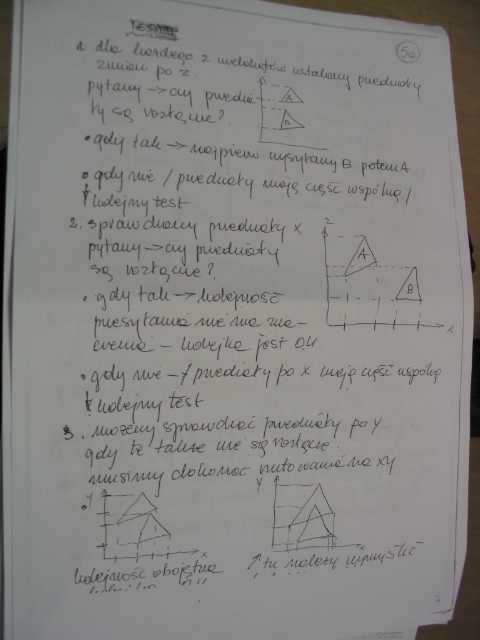 5a
1. dla każdego z wielokątów ustalamy przedziały
zmian po z.
pytamy → czy przedzia-
ły są rozłączne?
A
B
• gdy tak → najpierw wysyłamy B potem A.
• gdy nie / przedziały mają część wspólną /
kolejny test
2. sprawdzamy przedziały x
pytamy → czy przedziały
są rozłączne?
z
A
B
x
• gdy tak → kolejność
przesyłania nie ma zna-
czenia – kolejka jest o.k.
• gdy nie – / przedziały po x mają część wspólną
kolejny test
3. możemy sprawdzać przedziały po y.
gdy te także nie są rozłączne
musimy dokonać rzutowania na xy
y
x
y
kolejność obojętna
↑ tu należy